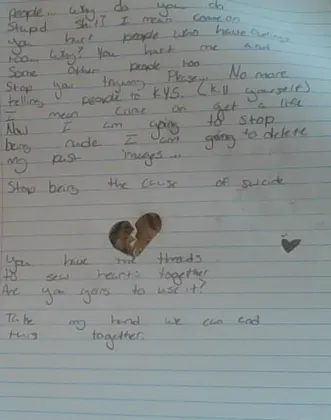 People... why do you do
Stupid Shit? I mean come on
you hurt people who have feelings
too... why? You hurt me and
Some other people too
Stop you Please... No more
telling people to KYS. (Kill yourself)
I mean come on get a life
Now I am going to stop
being rude I am going to delete
my past images...
Stop being the cause of suicide
You have the threads
to sew hearts together
Are you gonna to use it?
Take my hand we can end
this together.